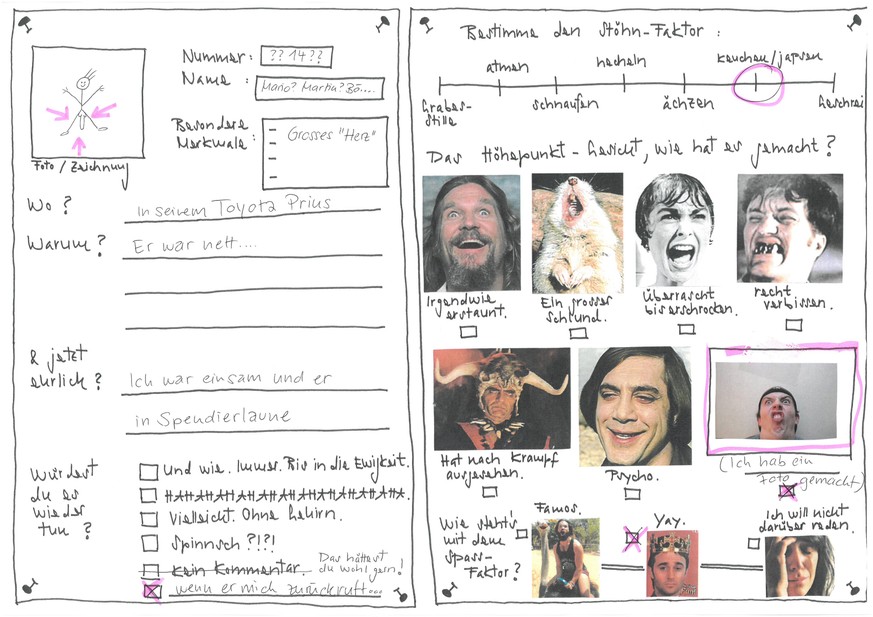 Nummer: ?? 14 ??
Name : Mario? Martha? Bö....
Besondere
Merkmale:
- Grosses "Herz"
-
-
-
Foto / Zeichnung
Wo? in seinem Toyota Prius
Warum? Er war nett....
& jetzt
ehrlich? Ich war einsam und er
in Spendierlaune
Würdest
du es
wieder
tun?
Und wie. Immer. Bis in die Ewigkeit.
HAHAHAHAHAHAHAHAHA.
Vielleicht. Ohne Gehirn.
Spinnsch ?!?!
kein Kommentar. Das hättest
du wohl gern!
wenn er mich zurückruft...
Bestimme den Stöhn-Faktor :
atmen
hecheln
keuchen/japsen
Grabes-
stille
schnaufen
ächzen
Geschrei
Das Höhepunkt-Gesicht, wie hat es gemacht?
Irgendwie
erstaunt.
Ein grosser
Schlund.
Überrascht
bis erschrocken.
recht
verbissen.
Hat nach Krampf
ausgesehen.
Psycho.
(Ich hab ein
Foto gemacht)
Wie steht's
mit dem
Spass-
Faktor?
Famos.
Yay.
Ich will nicht
darüber reden.